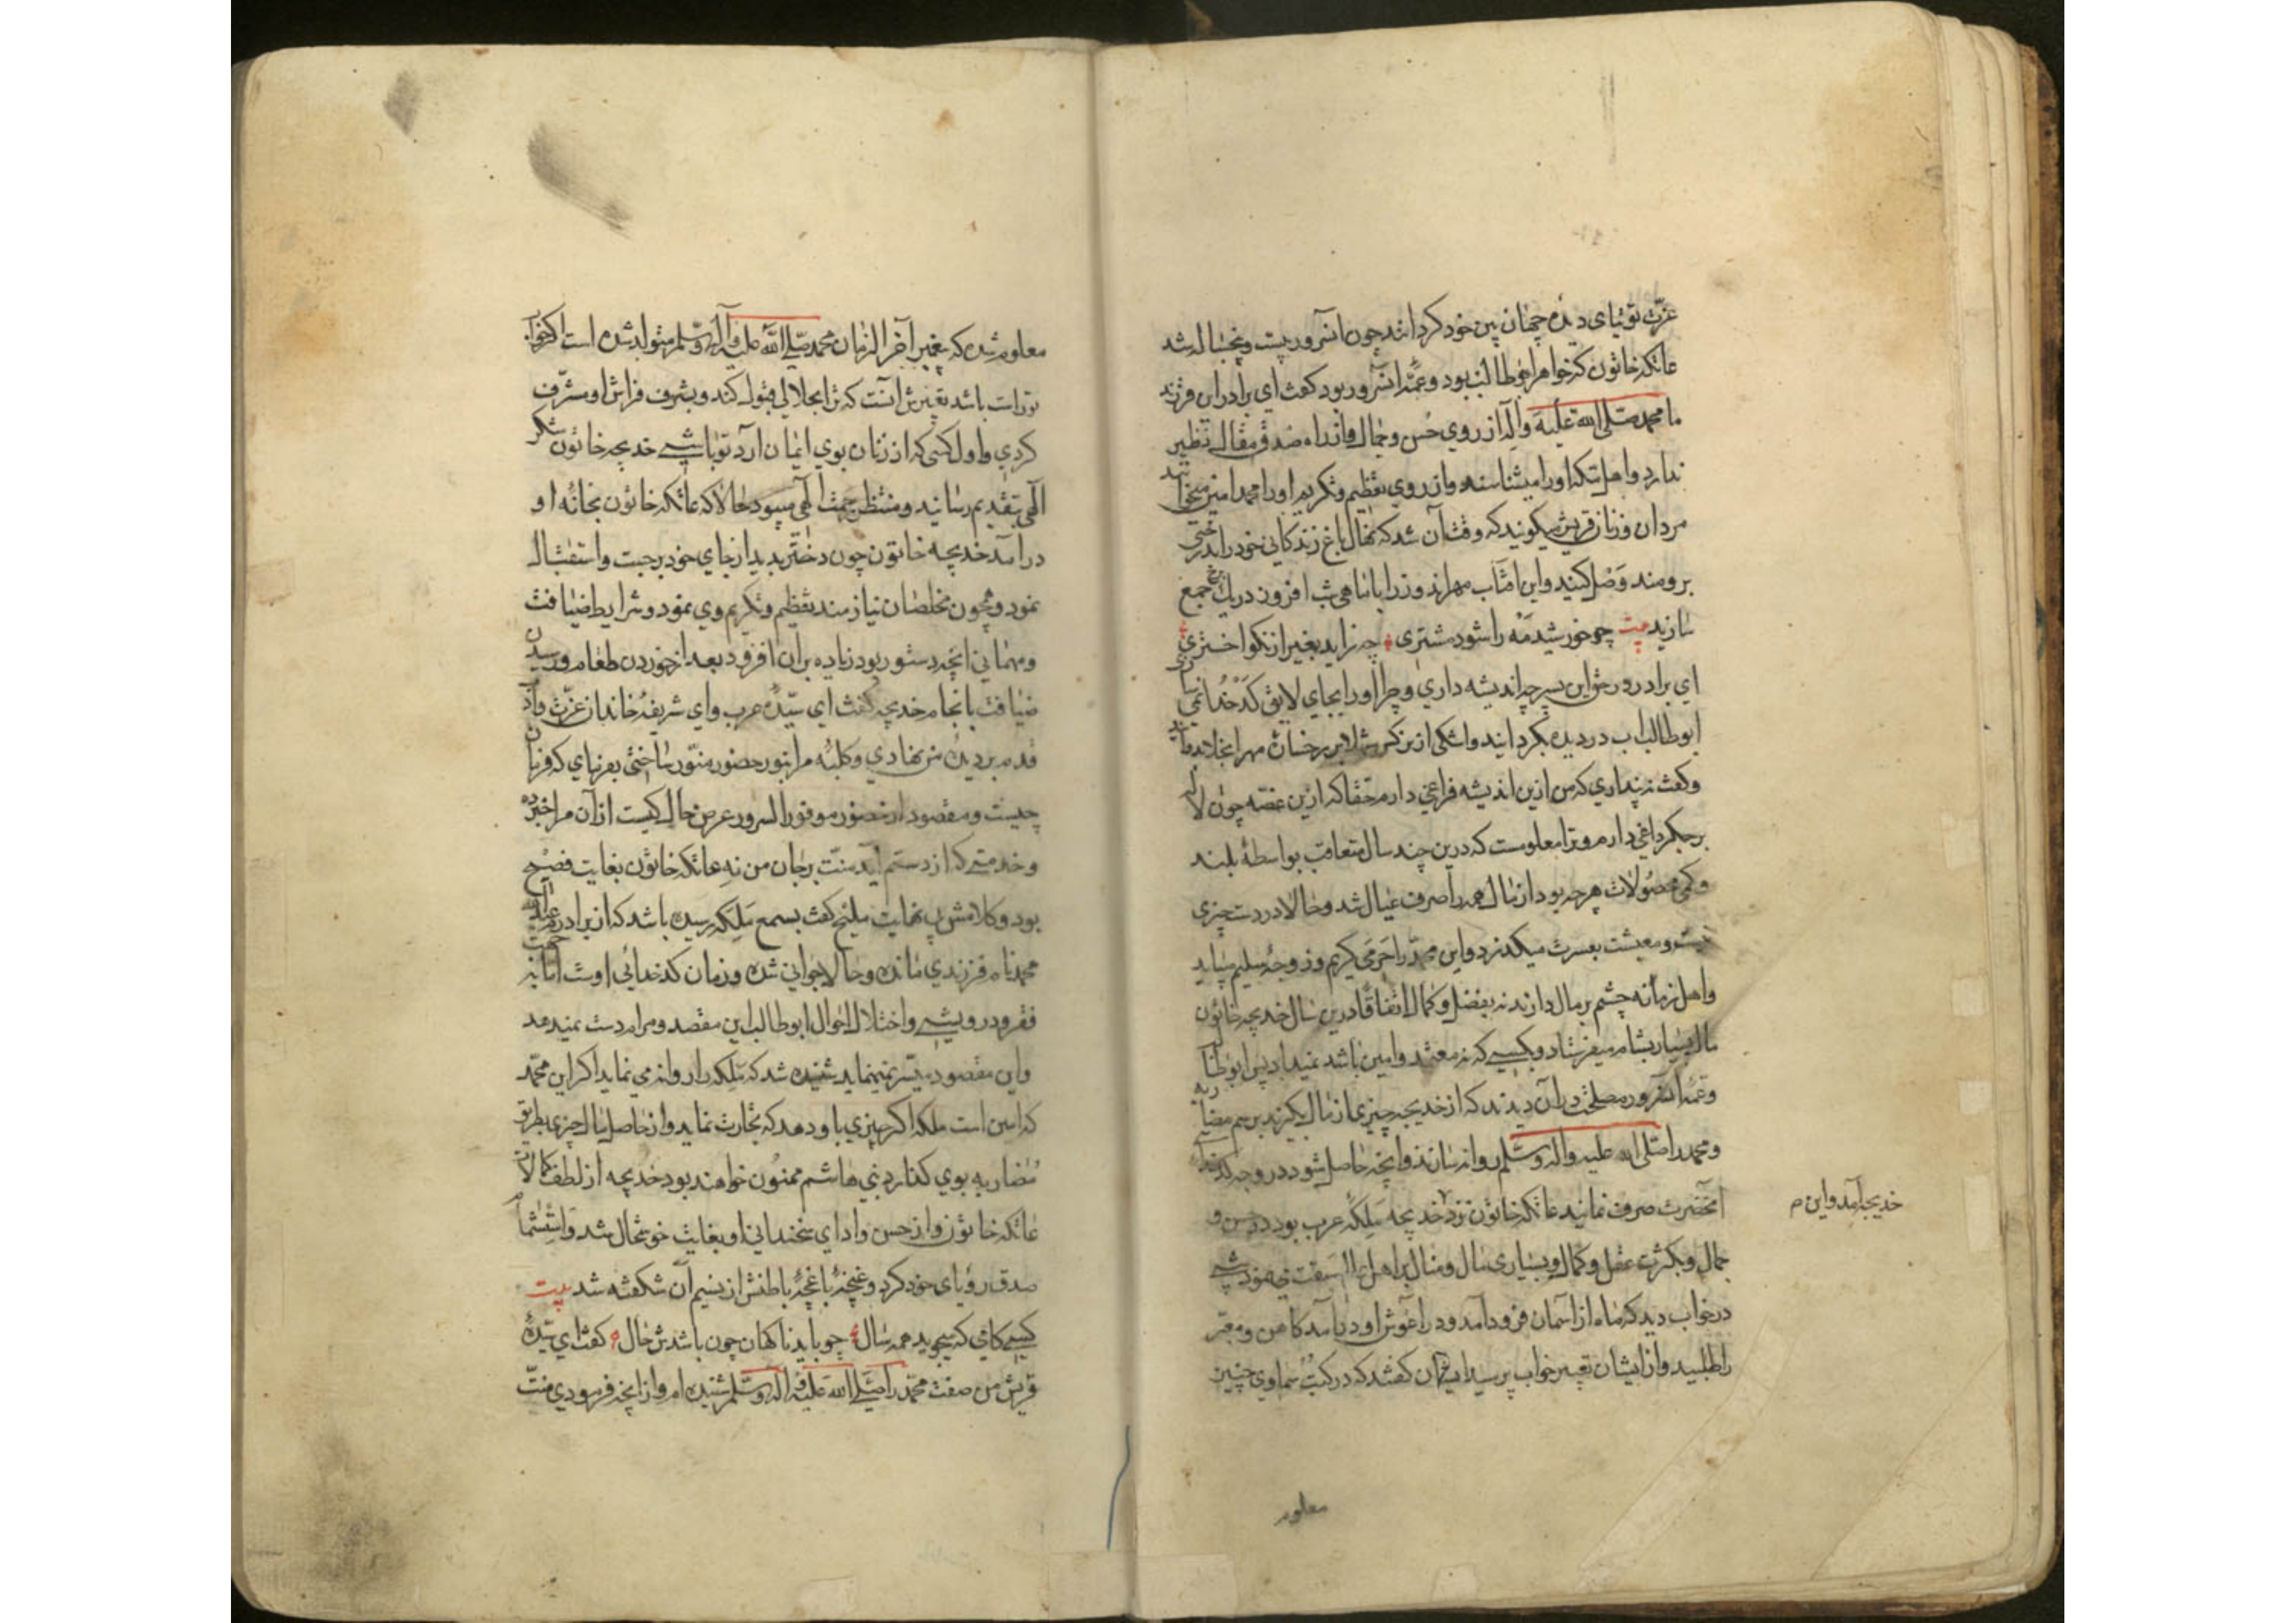 عزّت توتیای دیده جهان بین خود کردانند چون آنسرور بیست و پنجساله شد
عاتکه خاتون که خواهر ابوطالب بود و عمّه آنسرور بود کفت ای برادر این فرزند
ما محمد صلی الله علیه وآله از روی حُسن و جمال و از راه صدق مقال نظیر
ندارد و اهل مکه او را میشناسند و از روی تعظیم و تکریم او را محمد امین میخوانند
مردان و زنان قریش میکویند که وقت آن شد که نهال باغ زندکانی خود را بدرختی
برومند وَصْل کنید و این آفتاب مهرافروز را با ماهی شب افروز در یک برج جمع
سازید بیت چو خورشید مه را شود مشتری چه زاید بغیر از نکو اختری
ای برادر در حق این پسر چه اندیشه داری و چرا او را بجای لایق کدخدا نمی سازی
ابوطالب آب در دیده بگردانید و اشکی از نرکس شهلا بر رخساره
وکفت نپنداری که من ازین اندیشه فراغی دارم حقا که ازین غصه چون لاله
بر جکر داغی دارم و ترا معلومست که درین چند سال متعاقب بواسطۀ
وکمی محصُولات هرچه بود از مال همه را صرف عیال شد و حالا در دست چیزی
نیست و معیشت بعسرت میکذرد و این محمّد را حَرَمی کریم و زوجۀ سلیم میباید
و اهل زمانه چشم بر مال دارند نه بفضل و کمال اتفاقًا درین سال خدیجه خاتون
مال بسیار بشام میفرستاد و بکسی که نه معتمد و امین باشد نمیداد پس ابوطالب
و عمه آنسرور مصلحت در آن دیدند که از خدیجه چیزی از مال بکیرند برسم مضاربه
و محمد را صلی الله علیه وآله وسلم روانه سازند و آنچه حاصل شود در وجه کدخدایی
آنحضرت صرف نمایند عاتکه خاتون نزد خدیجه مَلِکۀ عرب بود در حسن و
جمال و بکثرت عقل و کمال و بسیاری مال و منال بر اهل سبقت می نمود شبی
در خواب دید که ماه از آسمان فرود آمد و در آغوش او درآمد کاهن و معبّر
را طلبید و از ایشان تعبیر خواب پرسید ایشان کفتند که در کتُب سماوی چنین
خدیجه آمد و این م
معلوم
معلوم شده که پیغمبر آخر الزمان محمد صلی الله علیه وآله وسلم متولد شده است اکر خواب
تو راست باشد تعبیرش آنست که ترا بحلالی قبول کند و بشرف فراش او مشرّف
کردی و اول کسی که از زنان بوی ایمان آرد تو باشی خدیجه خاتون شکر
الهی بتقدیم رسانید و منتظر رحمت الهی میبود حالا که عاتکه خاتون بخانۀ او
درآمد خدیجه خاتون چون دختر بدید از جای خود برجست و استقبال
نمود و همچون مخلصان نیازمند تعظیم و تکریم وی نمود و شرایط ضیافت
و مهمانی آنچه دستور بود زیاده بران افزود بعد از خوردن طعام و رسیدن
ضیافت بانجام خدیجه کفت ای سیّدۀ عرب و ای شریفۀ خاندان عزّت و
قدم بر دیدۀ من نهادی و کلبۀ مرا بنور حضور منوّر ساختی بفرمای که فرمان
چیست و مقصود از حضور موفور السرور عرض حال کیست از آن مرا خبر ده
و خدمتی که از دستم آید منّت برجان من نه عاتکه خاتون بغایت فصیح
بود و کلامش بنهایت ملیح کفت بسمع مَلِکه رسیده باشد که از برادرم عبدالله
محمد نام فرزندی مانده و حالا جوانی شده و زمان کدخدائی اوست اما بجهت
فقر و درویشی و اختلال احوال ابوطالب این مقصد و مرام دست نمیدهد
و این مقصود میسّر نمینماید شنیده شد که مَلِکه را روانه می نماید اکر این محمّد
که امین است ملکه اکر چیزی باو دهد که تجارت نماید و از حاصل مال چیزی بطریق
مُضاربه بوی کذارد بنی هاشم ممنُون خواهند بود خدیجه از لطف کمالات
عاتکه خاتون و از حسن و ادای سخندانی او بغایت خوشحال شد و استشمام
صدق رؤیای خود کرد و غنچۀ باغچۀ باطنش از نسیم آن شکفته شد بیت
کسی کافی که میجوید همه سال چو یابد ناکهان چون باشدش حال کفت ای سیّدۀ
قریش من صفت محمّد را صلی الله علیه وآله وسلم شنیده ام و از آنچه فرمودی منّت